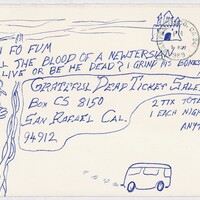 FO FUM
THE BLOOD OF A NEWJERSEAN
LIVE OR BE HE DEAD? I GRIND HIS BONES
GRATEFUL DEAD TICKET SALES
BOX CS 8150
SAN RAFAEL CAL.
94912
2 TIX TOTAL
1 EACH NIGHT
ANY